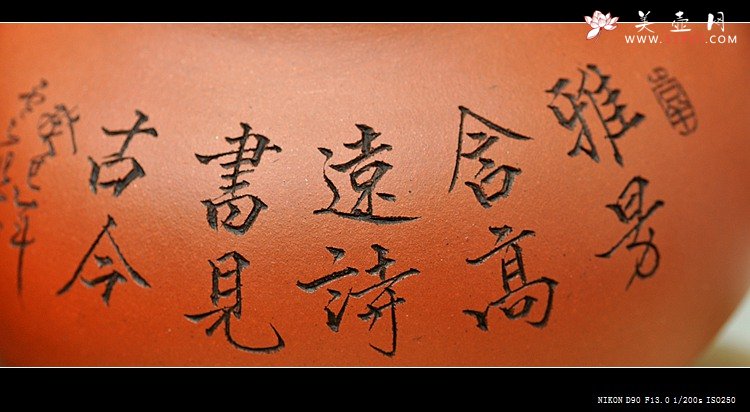 美壶网
WWW. .COM
雅量
含高
遠詩
書見
古今
癸巳年
NIKON D90 F13.0 1/200s ISO250